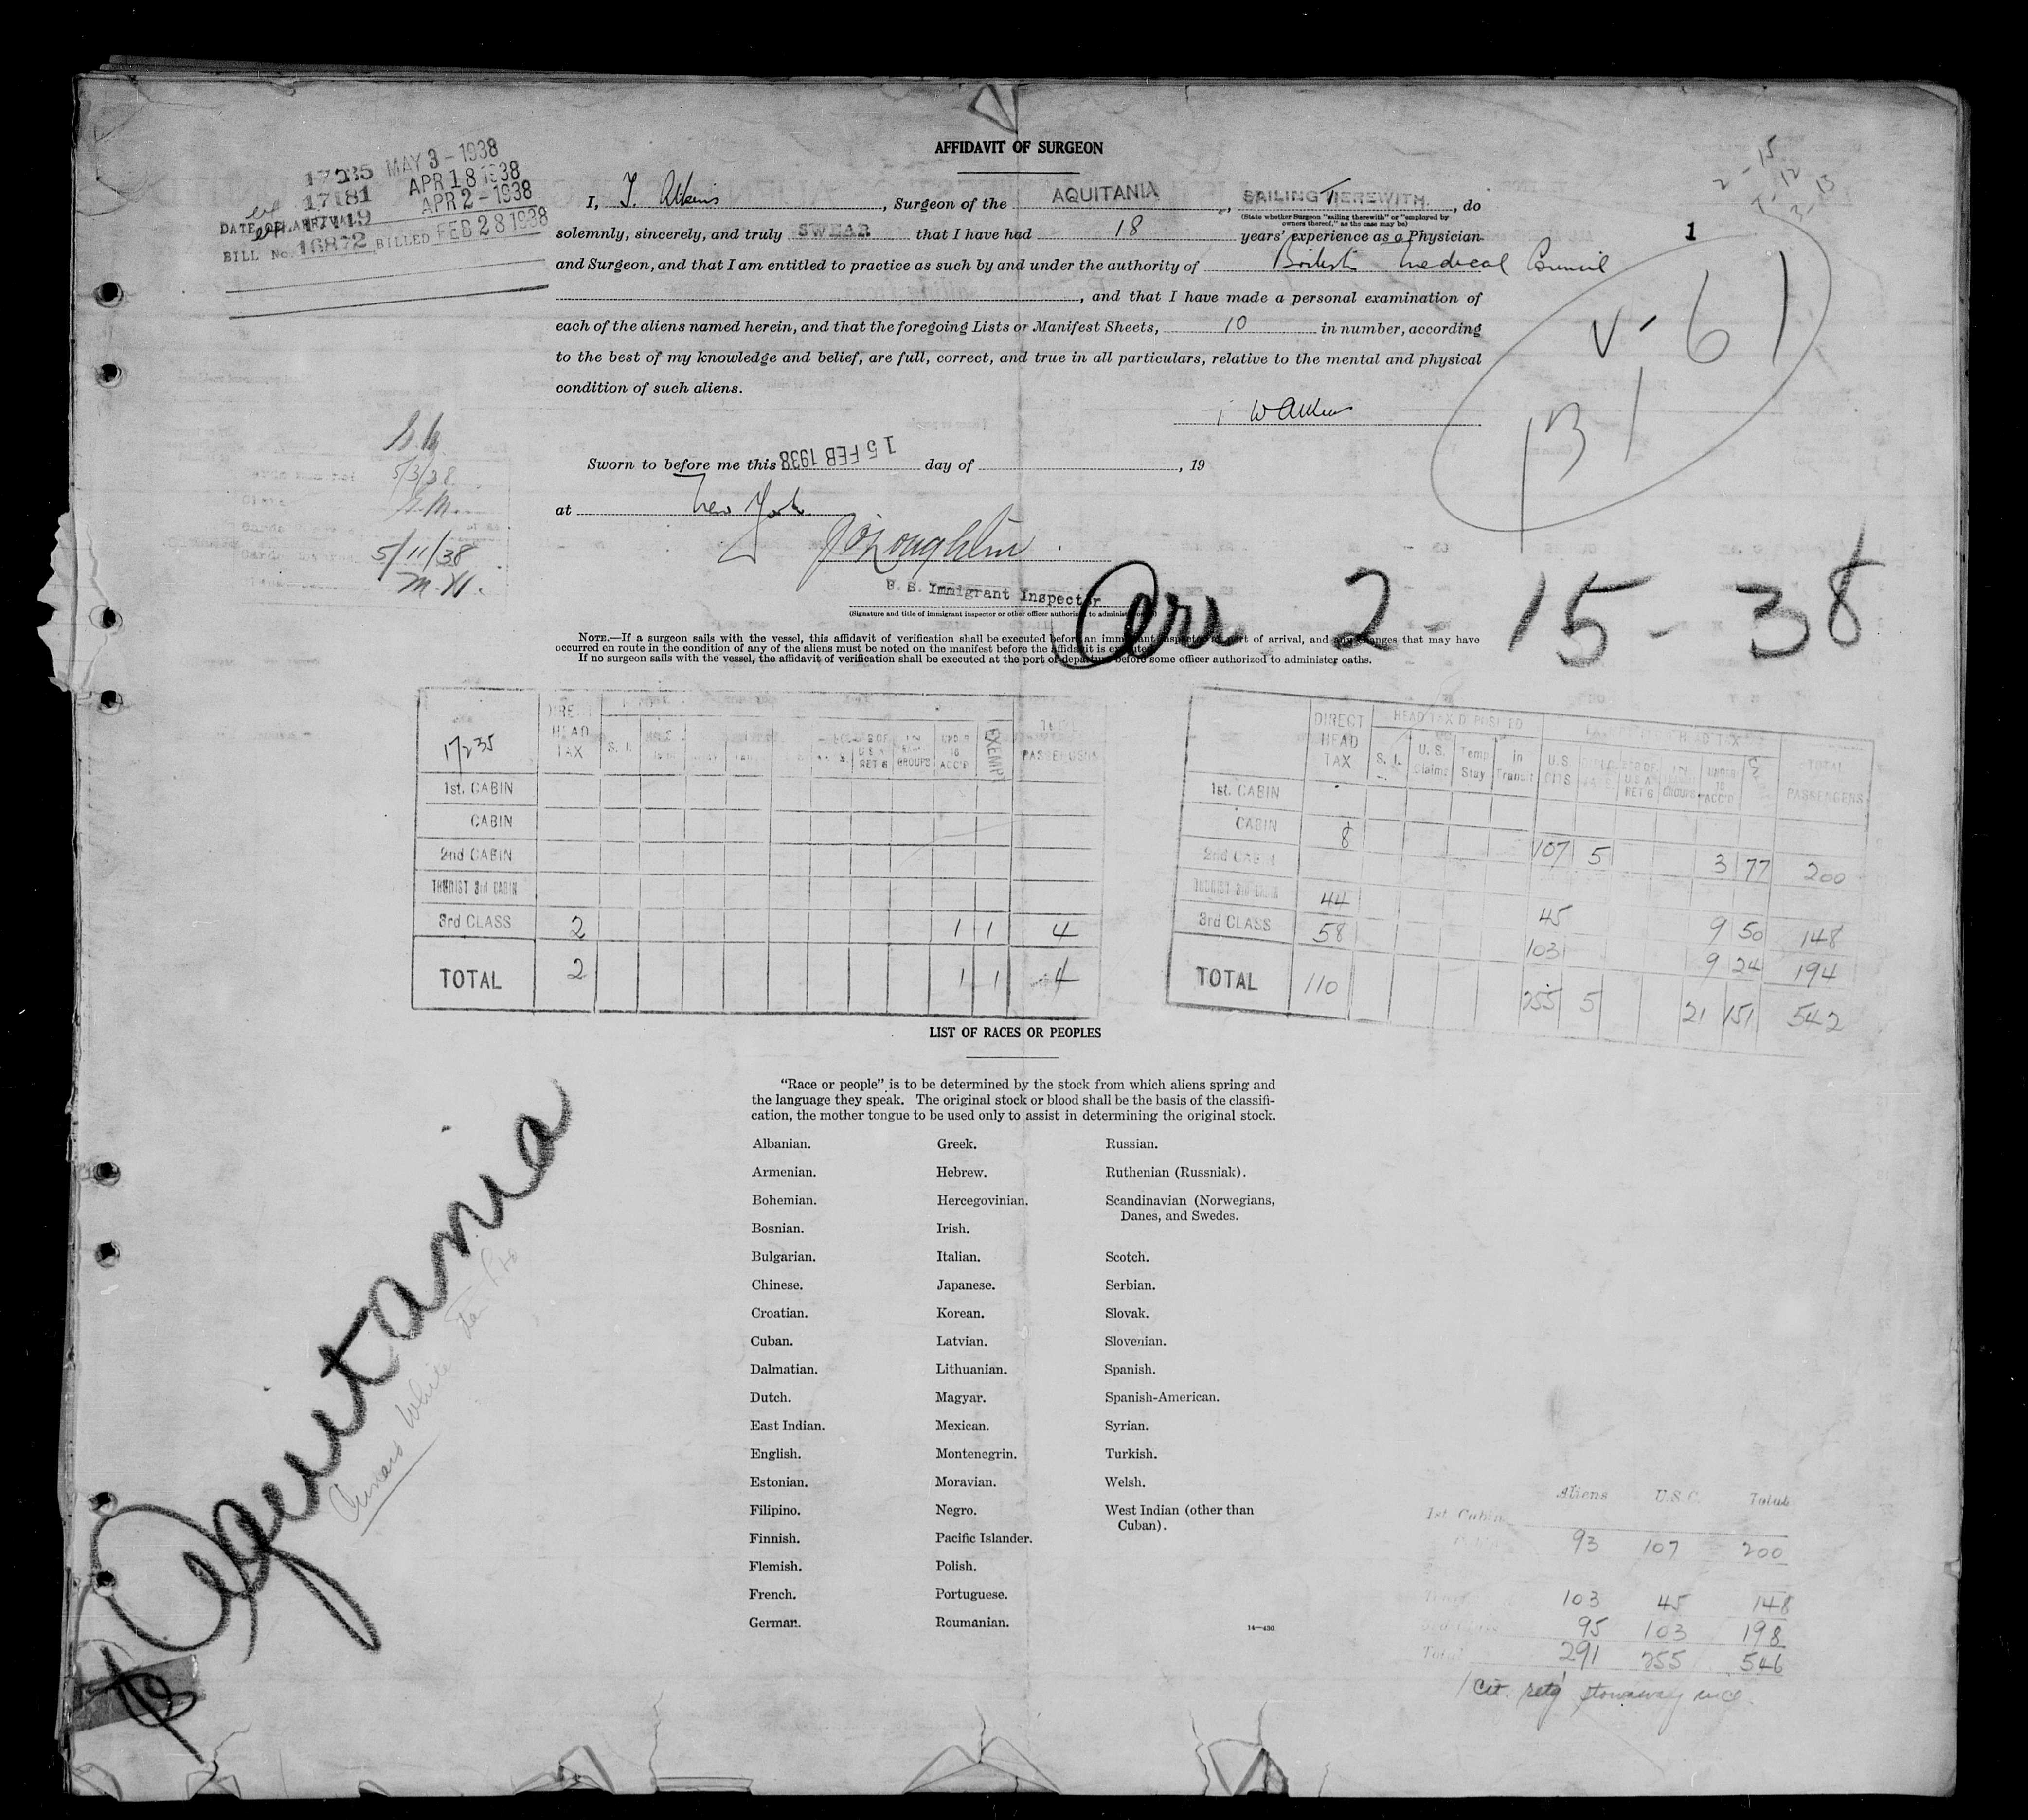 AFFIDAVIT OF SURGEON
17235 MAY 3 - 1938
17181 APR 18 1938
17119 APR 2 - 1938
DATE OF ARRIVAL
BILL No. 16872 BILLED FEB 28 1938
2-15
I, T. Atkins, Surgeon of the AQUITANIA, SAILING THEREWITH, do
(State whether Surgeon "sailing therewith" or "employed by owners thereof," as the case may be)
solemnly, sincerely, and truly SWEAR that I have had 18 years' experience as a Physician
1
and Surgeon, and that I am entitled to practice as such by and under the authority of British Medical Council
, and that I have made a personal examination of
each of the aliens named herein, and that the foregoing Lists or Manifest Sheets, 10 in number, according
to the best of my knowledge and belief, are full, correct, and true in all particulars, relative to the mental and physical
condition of such aliens.
V-61
131
Sworn to before me this 15 FEB 1938 day of , 19
at New York
5/3/38
5/11/38
M.H.
U. S. Immigrant Inspector
(Signature and title of immigrant inspector or other officer authorized to administer oaths)
Arr 2-15-38
NOTE.—If a surgeon sails with the vessel, this affidavit of verification shall be executed before an immigrant inspector at port of arrival, and any changes that may have
occurred en route in the condition of any of the aliens must be noted on the manifest before the affidavit is executed.
If no surgeon sails with the vessel, the affidavit of verification shall be executed at the port of departure before some officer authorized to administer oaths.
17235 DIRECT HEAD TAX S. I. U S A RET'G GROUPS UNDER 16 ACC'D EXEMPT PASSENGERS
1st. CABIN
CABIN
2nd CABIN
TOURIST 3rd CABIN
3rd CLASS 2 1 1 4
TOTAL 2 1 1 4
DIRECT HEAD TAX HEAD TAX DEPOSITED S. I. U. S. Claims Temp Stay In Transit U.S. CITS U S A RET'G GROUPS UNDER 16 ACC'D TOTAL PASSENGERS
1st. CABIN
CABIN 8 107 5 3 77 200
2nd CABIN
TOURIST 3rd CABIN 44 45 9 50 148
3rd CLASS 58 103 9 24 194
TOTAL 110 255 5 21 151 542
LIST OF RACES OR PEOPLES
"Race or people" is to be determined by the stock from which aliens spring and
the language they speak. The original stock or blood shall be the basis of the classifi-
cation, the mother tongue to be used only to assist in determining the original stock.
Albanian.
Armenian.
Bohemian.
Bosnian.
Bulgarian.
Chinese.
Croatian.
Cuban.
Dalmatian.
Dutch.
East Indian.
English.
Estonian.
Filipino.
Finnish.
Flemish.
French.
German.
Greek.
Hebrew.
Hercegovinian.
Irish.
Italian.
Japanese.
Korean.
Latvian.
Lithuanian.
Magyar.
Mexican.
Montenegrin.
Moravian.
Negro.
Pacific Islander.
Polish.
Portuguese.
Roumanian.
Russian.
Ruthenian (Russniak).
Scandinavian (Norwegians,
Danes, and Swedes.
Scotch.
Serbian.
Slovak.
Slovenian.
Spanish.
Spanish-American.
Syrian.
Turkish.
Welsh.
West Indian (other than
Cuban).
14—430
Aquitania
Cunard White
Aliens U.S.C. Total
1st Cabin
93 107 200
103 45 148
95 103 198
Total 291 255 546
1 Cit. retg stowaway incl.